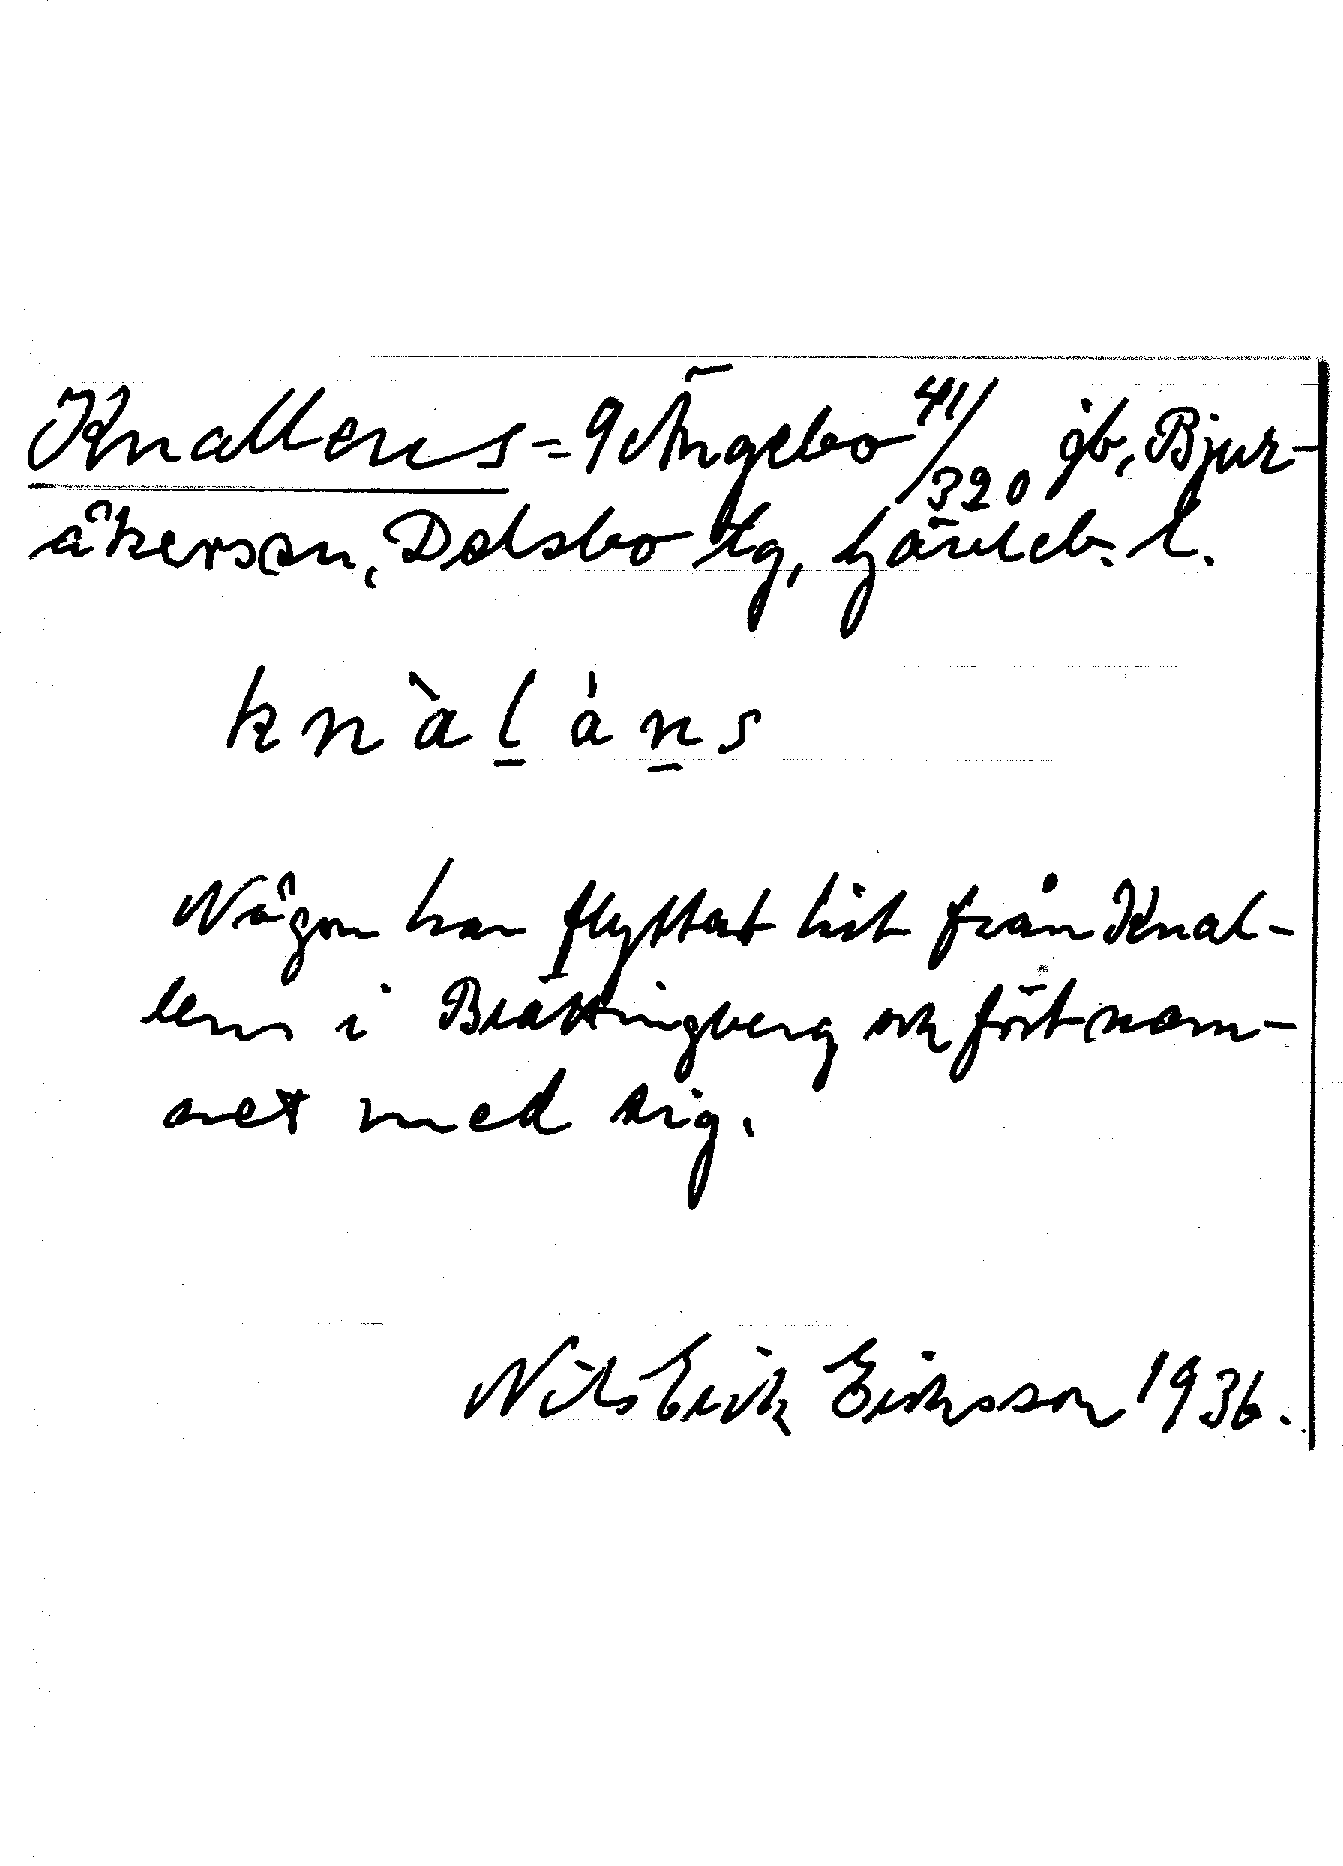 Knallens = 9 Ängebo 41/320 gb, Bjur-
åkers sn, Delsbo tg, Gävleb. l.
knàlȧns
Någon har flyttat hit från Knal-
lens i Brättingberg och fört nam-
net med sig.
Nils Erik Eriksson 1936.